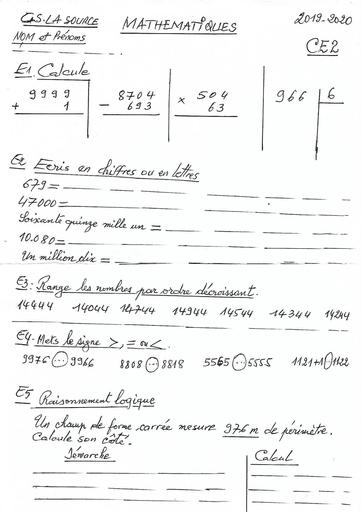 GS. LA SOURCE MATHEMATIQUES 2019-2020
NOM et Prénoms CE2
E1. Calcule
9999 + 1
8704 - 693
504 × 63
966 | 6
E2 Ecris en chiffres ou en lettres
679 =
47000 =
Soixante quinze mille un =
10.080 =
Un million dix =
E3: Range les nombres par ordre décroissant.
14444 14044 14744 14944 14544 14344 14244
E4. Mets le signe >, = ou <.
9976 ... 9966 8808 ... 8818 5565 ... 5555 1121+1 1122
E5 Raisonnement logique
Un champ de forme carrée mesure 976 m de périmètre.
Calcule son côté.
Démarche Calcul